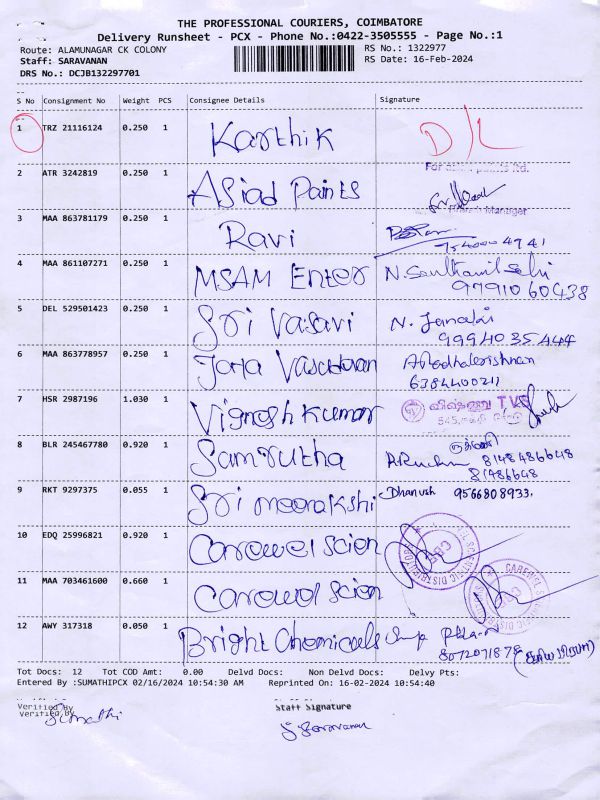 THE PROFESSIONAL COURIERS, COIMBATORE
Delivery Runsheet - PCX - Phone No.:0422-3505555 - Page No.:1
Route: ALAMUNAGAR CK COLONY RS No.: 1322977
Staff: SARAVANAN RS Date: 16-Feb-2024
DRS No.: DCJB132297701
S No Consignment No Weight PCS Consignee Details Signature
1 TRZ 21116124 0.250 1 Karthik D/L
2 ATR 3242819 0.250 1 Asiad Paints
Manager
3 MAA 863781179 0.250 1 Ravi
4 MAA 861107271 0.250 1 MSAM Enter N. Senthamil Selvi
9791060438
5 DEL 529501423 0.250 1 Sri Vasavi N. Janaki
9994035444
6 MAA 863778957 0.250 1 Vasudevan A Radhakrishnan
6384400211
7 HSR 2987196 1.030 1 Vignesh Kumar TVS
8 BLR 245467780 0.920 1 Samrutha
8148486648
9 RKT 9297375 0.055 1 Sri meenakshi Dhanush 9566808933.
10 EDQ 25996821 0.920 1 Carewel Scien
11 MAA 703461600 0.660 1 Carewel Scien
12 AWY 317318 0.050 1 Bright Chemicals
8072071878
Tot Docs: 12 Tot COD Amt: 0.00 Delvd Docs: Non Delvd Docs: Delvy Pts:
Entered By :SUMATHIPCX 02/16/2024 10:54:30 AM Reprinted On: 16-02-2024 10:54:40
Verified By Staff Signature
Sumathi
S Saravanan